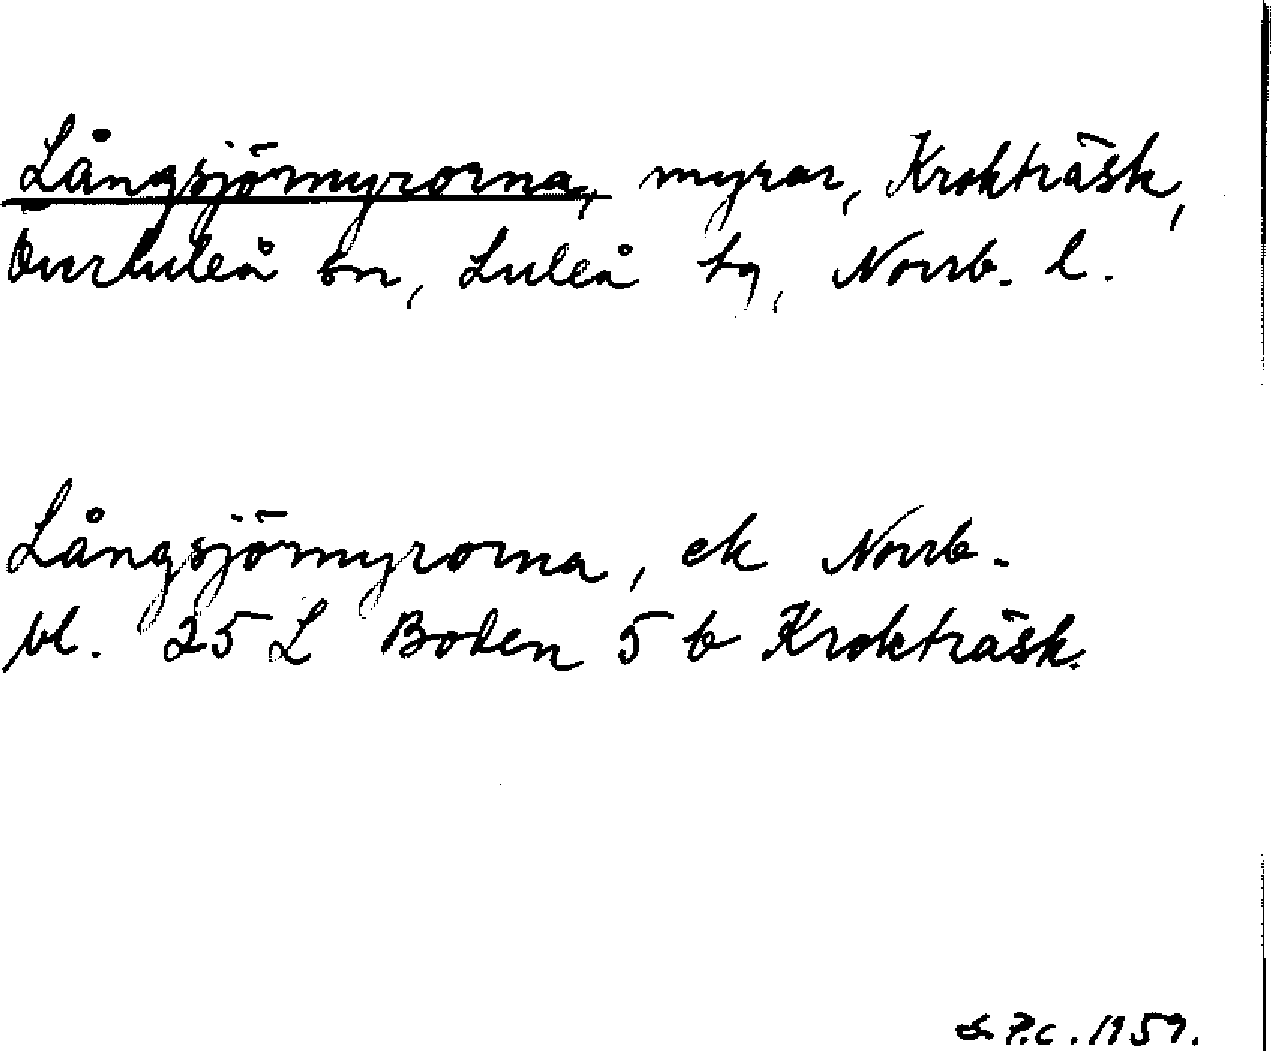 Långsjömyrorna, myrar, Krokträsk,
Överluleå sn, Luleå tg, Norrb. l.
Långsjömyrorna, ek Norrb.
bl. 25 L Boden 5 b Krokträsk.
P.c. 1959.